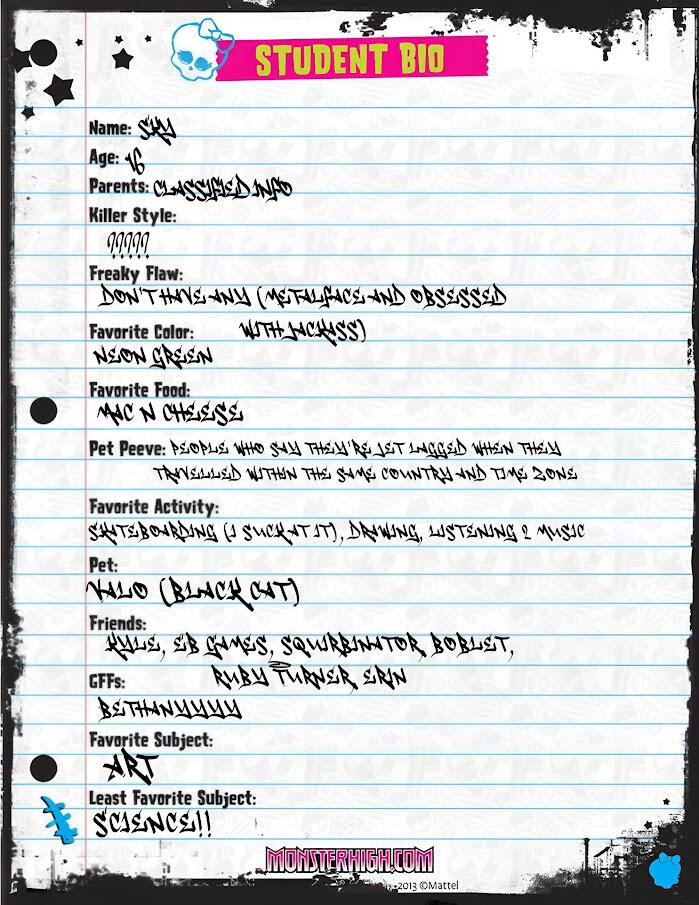 STUDENT BIO
Name: SKY
Age: 16
Parents: CLASSIFIED INFO
Killer Style:
?????
Freaky Flaw:
DON'T HAVE ANY (METALFACE AND OBSESSED
WITH JACKASS)
Favorite Color:
NEON GREEN
Favorite Food:
MAC N CHEESE
Pet Peeve: PEOPLE WHO SAY THEY'RE JET LAGGED WHEN THEY
TRAVELLED WITHIN THE SAME COUNTRY AND TIME ZONE
Favorite Activity:
SKATEBOARDING (I SUCK AT IT), DRAWING, LISTENING 2 MUSIC
Pet:
VALO (BLACK CAT)
Friends:
KYLE, EB GAMES, SQUIRBINATOR BOBLET,
RUBY TURNER, ERIN
GFFs:
BETHANYYYY
Favorite Subject:
ART
Least Favorite Subject:
SCIENCE!!
MONSTERHIGH.COM
2013 ©Mattel